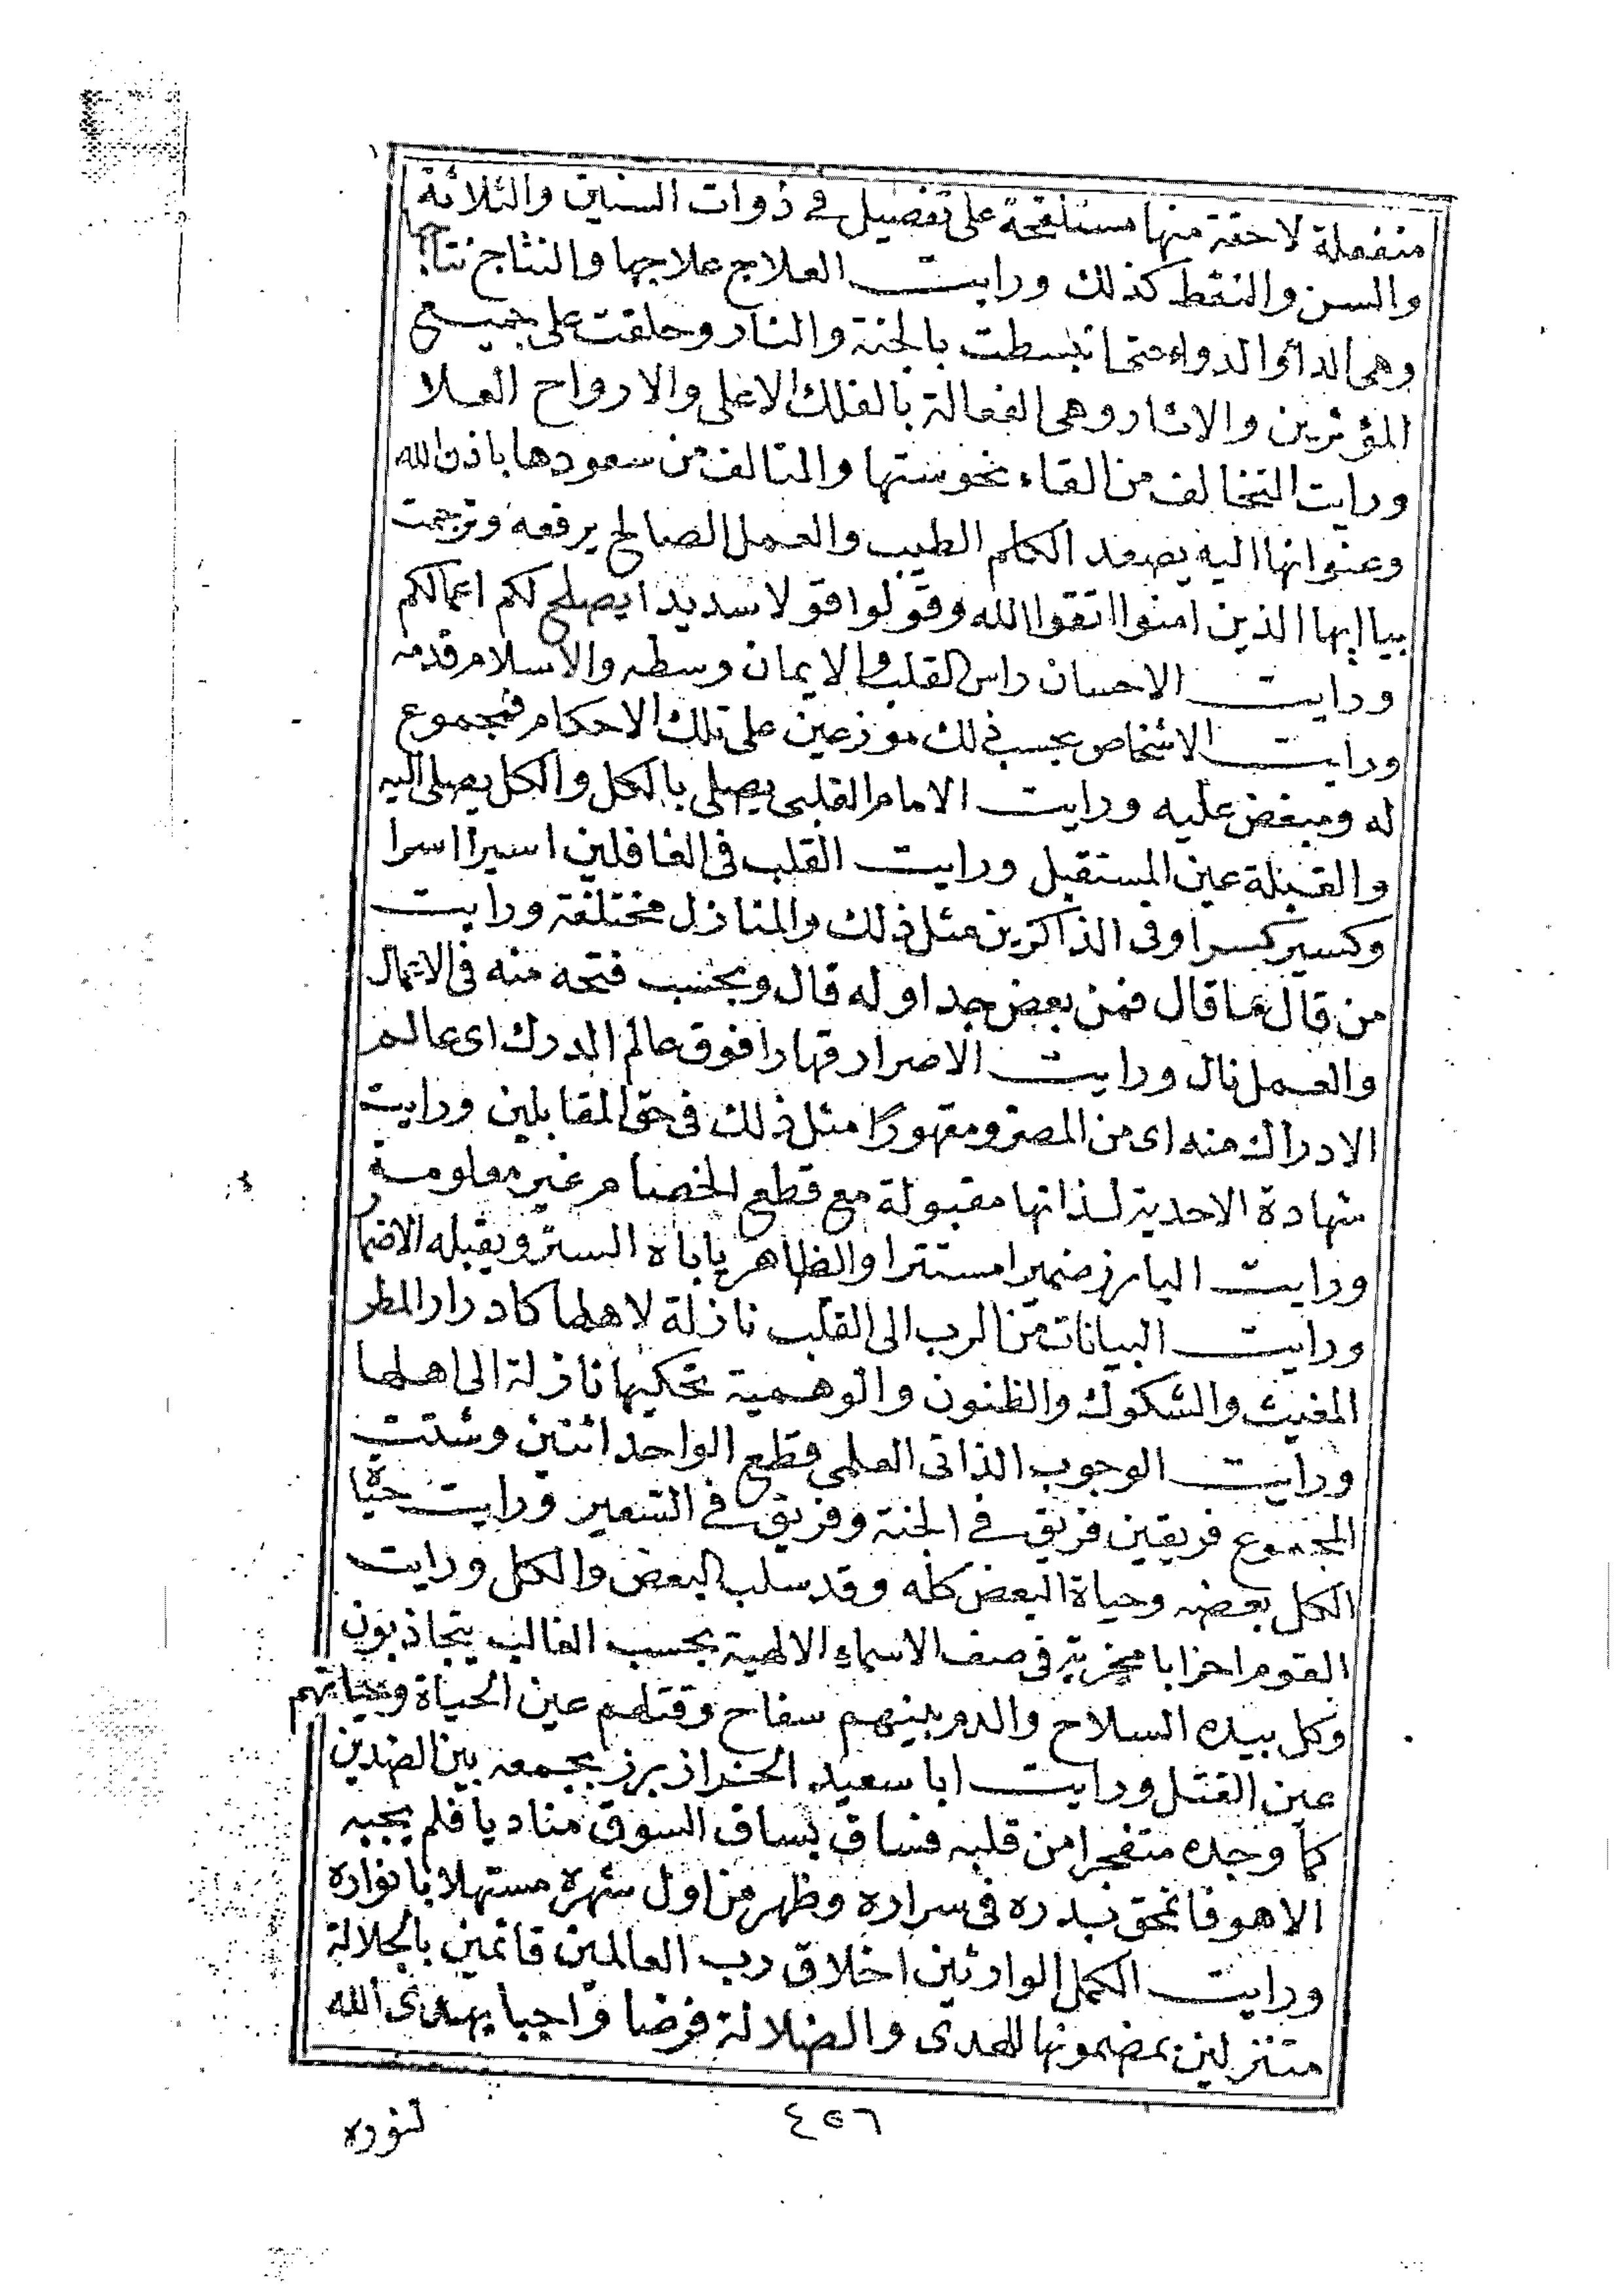 منفعلة لاحقة منها مستلقحة على تفصيل في ذوات السنين والثلاثة
والسن والنقط كذلك ورايت العلاج علاجها والنتاج نتاجها
وهي الداؤ الدواء حتما نبسطت بالجنة والنار وحلقت على جميع
المؤثرين والاثار وهي الفعالة بالفلك الاعلى والارواح العلا
ورايت التخالف من القاء نحوستها والتالف من سعودها باذن الله
وعنوانها اليه يصعد الكلم الطيب والعمل الصالح يرفعه وترجمت
بيا ايها الذين امنوا اتقوا الله وقولوا قولا سديدا يصلح لكم اعمالكم
ورايت الاحسان راس القلب والايمان وسطه والاسلام قدمه
ورايت الاشخاص بحسب ذلك موزعين على تلك الاحكام فمجموع
له ومبغض عليه ورايت الامام القلبي يصلي بالكل والكل يصلي اليه
والقبلة عين المستقبل ورايت القلب في الغافلين اسيرا اسرا
وكسير كسرا وفي الذاكرين مثل ذلك والمنازل مختلفة ورايت
من قال ما قال فمن بعض جداوله قال وبحسب فتحه منه في الاعمال
والعمل نال ورايت الاصرار قهارا فوق عالم الدرك اى عالم
الادراك منه اى من المصر ومقهورًا مثل ذلك في حق المقابلين ورايت
شهادة الاحدية لذاتها مقبولة مع قطع الخصام غير معلومة
ورايت البارز ضميرا مستترا والظاهر ياباه الستر ويقبله الاضمار
ورايت البيانات من الرب الى القلب نازلة لاهلها كادرار المطر
المغيث والشكوك والظنون والوهمية تحكيها نازلة الى اهلها
ورايت الوجوب الذاتي العلمي قطع الواحد اثنين وشتت
المجموع فريقين فريق في الجنة وفريق في السعير ورايت حياة
الكل بعضه وحياة البعض كله وقد سلب البعض والكل ورايت
القوم احزابا متحزبة في صف الاسماء الالهية بحسب الغالب يتجاذبون
وكل بيده السلاح والدم بينهم سفاح وقتلهم عين الحياة وحياتهم
عين القتل ورايت ابا سعيد الخراز برز بجمعه بين الضدين
كما وجده متفجرا من قلبه فساق بساق السوق مناديا فلم يجبه
الا هو فانمحق بدره في سراره وظهر من اول شهره مستهلا بانواره
ورايت الكمل الوارثين اخلاق رب العالمين قائمين بالجلالة
متنزلين بمضمونها للهدى والضلالة فرضا واجبا يهدى الله
٤٥٦
لنوره